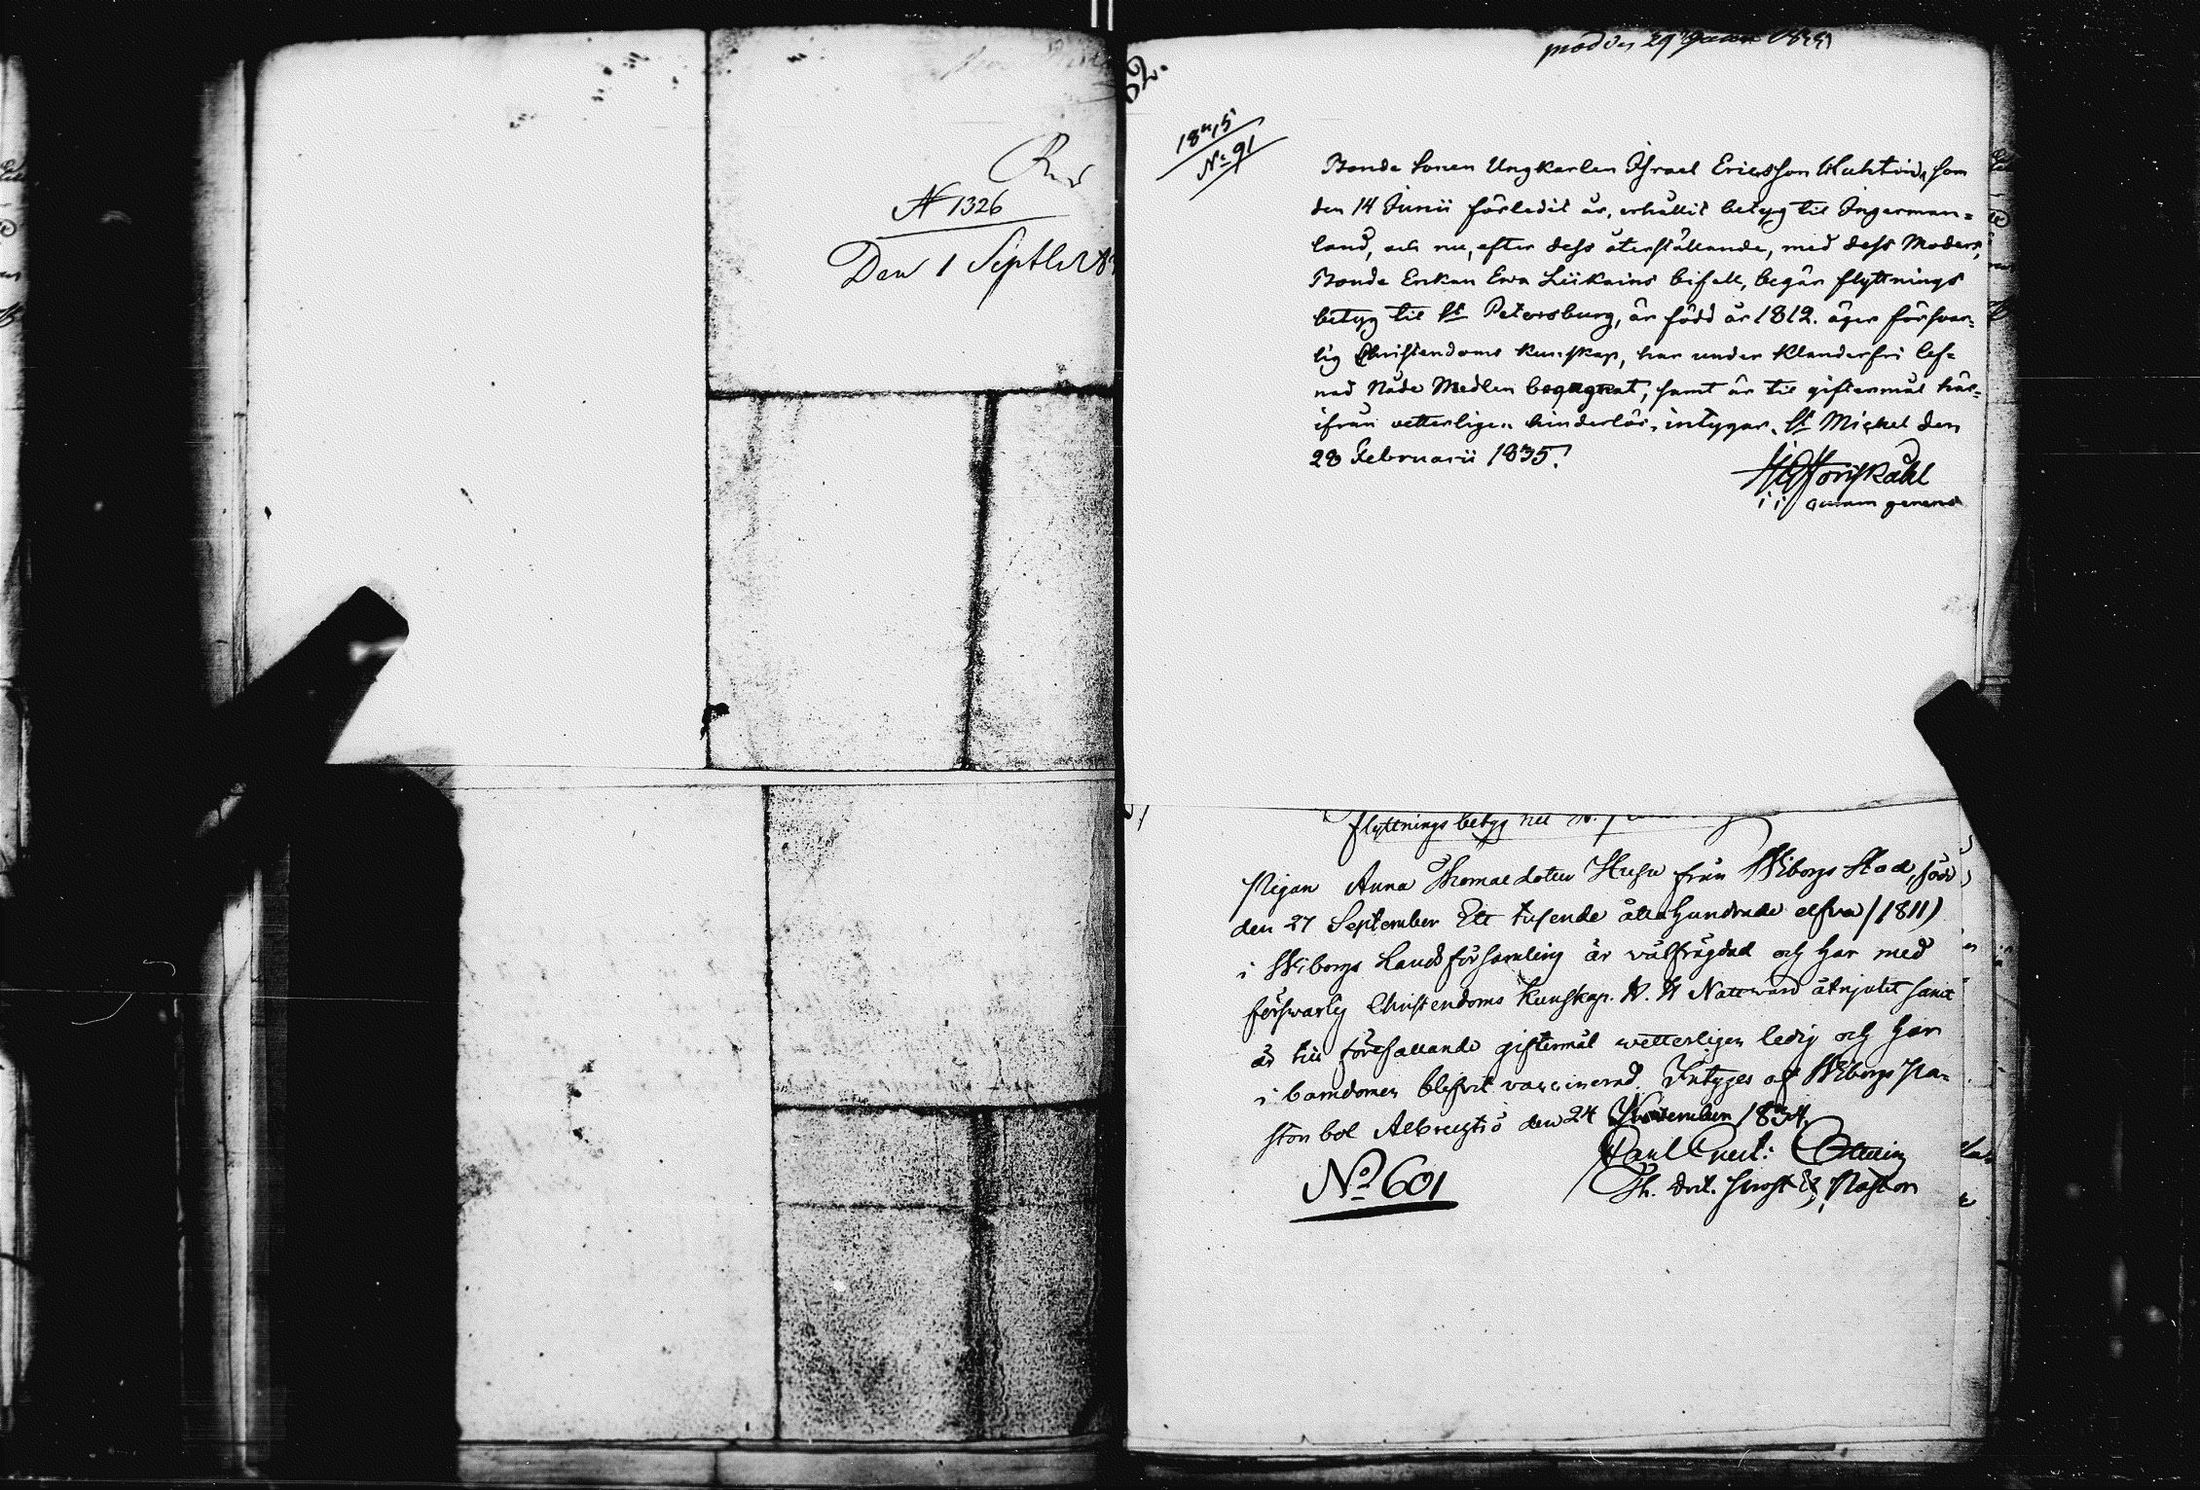 N 1326
Den 1 Septbr
18 4/5 35
No 91
Bonde Sonen Ungkarlen Israel Ericsson Huhtin, som
den 14 Junii förledit år, erhållit betyg til Ingerman=
land, och nu, efter dess återställande, med dess Moders,
Bonde Enkan Ewa Liikains bifall, begär flyttnings
betyg til St Petersburg, är född år 1812. äger försvar=
lig Christendoms kunskap, har under klanderfri lef=
nad Nåde Medlen begagnat, samt är til giftermål här=
ifrån vetterligen hinderlös, intygar. St Michel den
28 Februarii 1835.
Forsskåhl
curam gerens
flyttnings betyg till
Pigan Anna Thomae dotter från Wiborgs Stad, född
den 27 September Ett tusende åttahundrade elfva (1811)
i Wiborgs Landsförsamling är välfrägdad och har med
förswarlig Christendoms Kunskap H. H Nattward åtnjutit samt
är till förefallande giftermål wetterligen ledig och har
i barndomen blifvit vaccinerad. Intyges af Wiborgs Pa=
stors bol Albrugtsö den 24 November 1834.
No 601
Th. Doct. Prost & Pastor